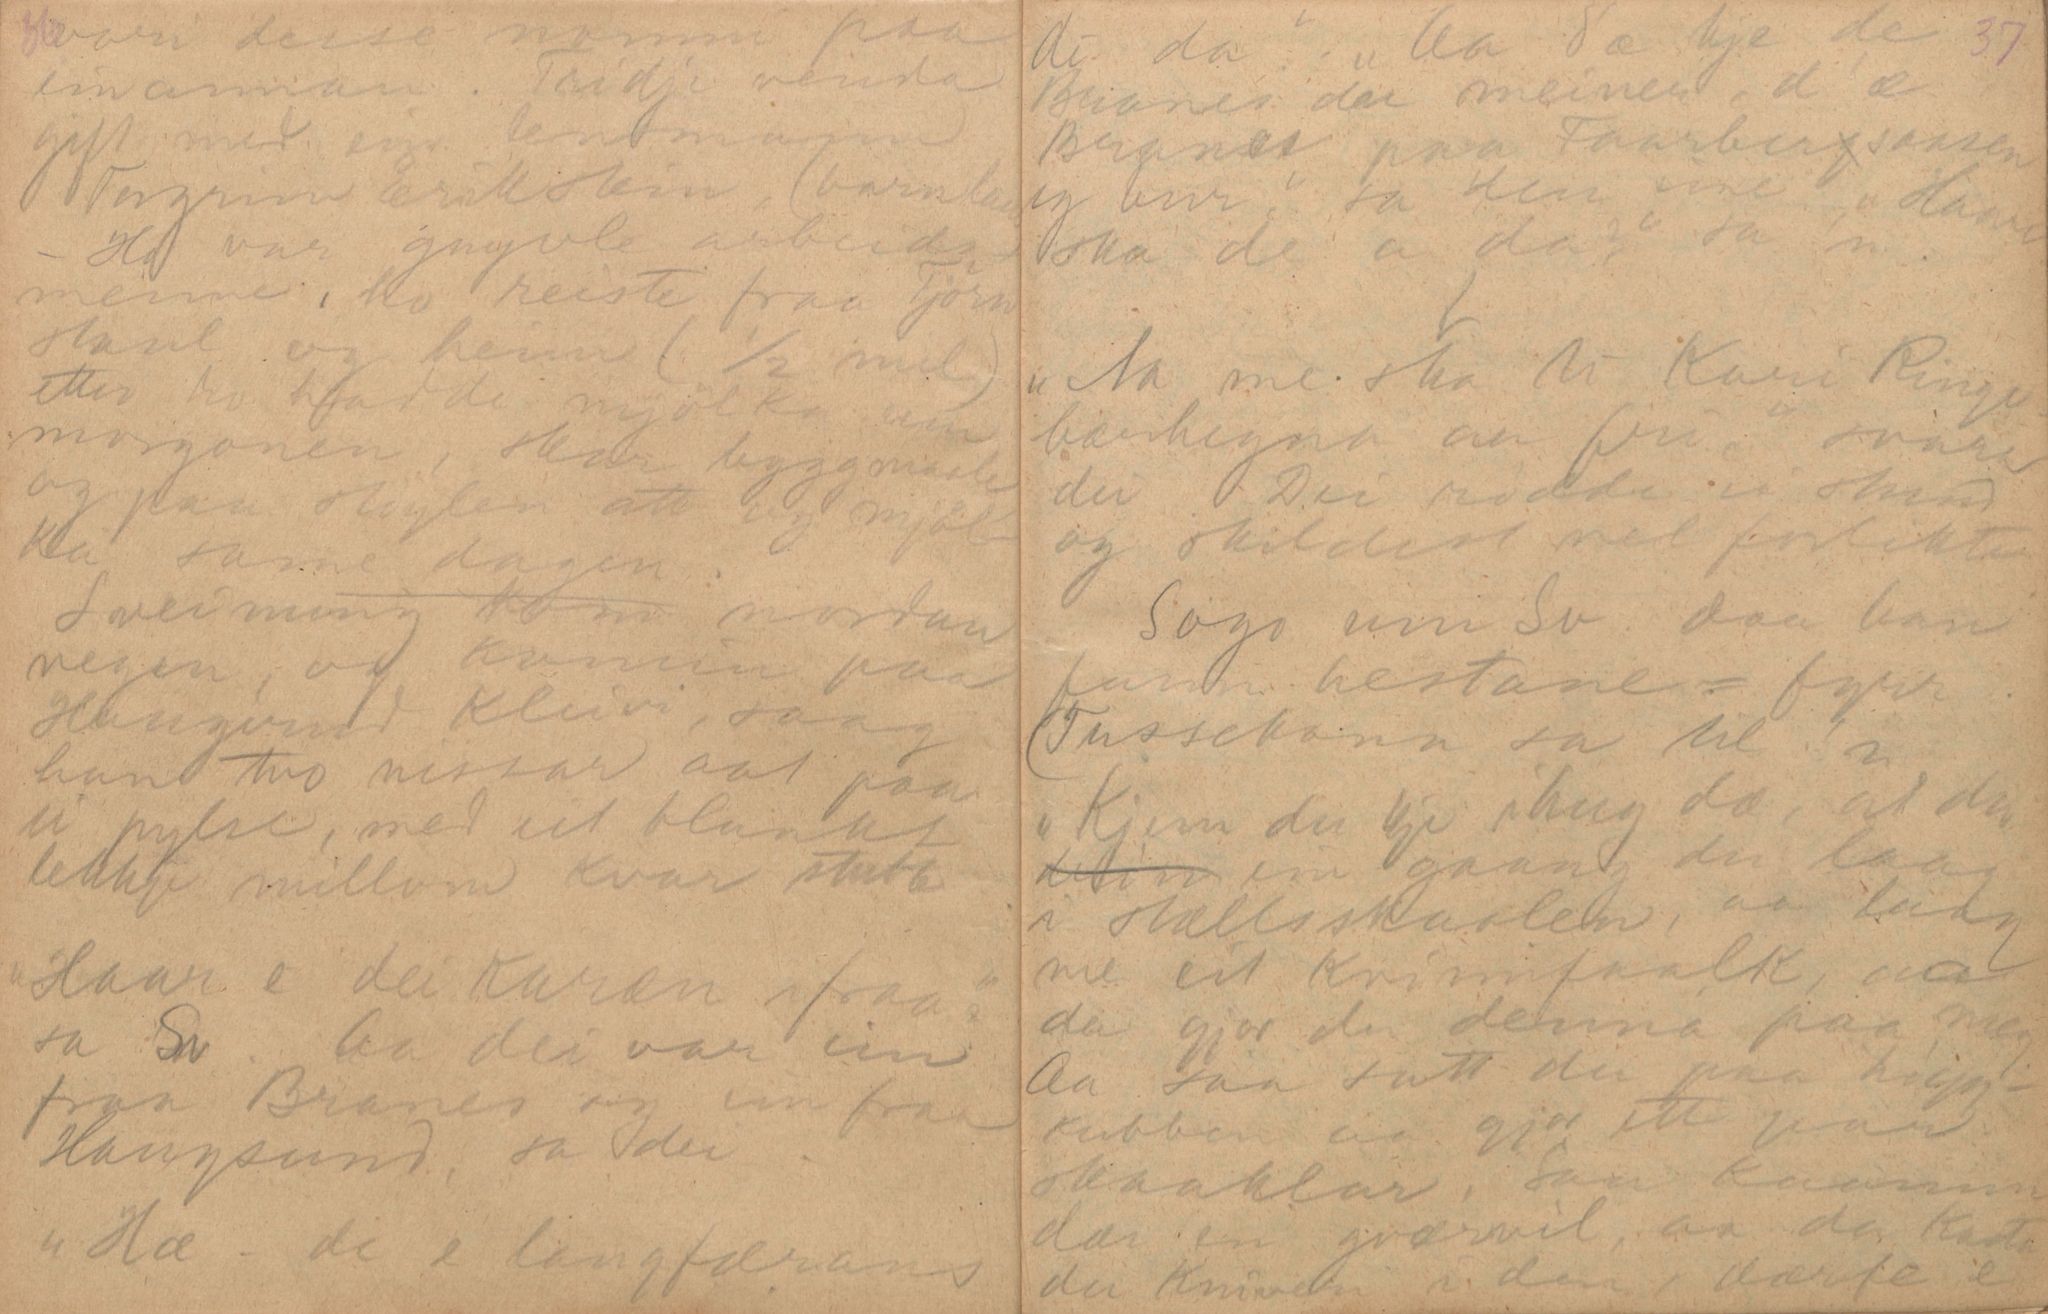 36
vori desse nommi paa
einannan. Tridje venda
gift med ein lensmann
Torgrim Erikstein, (barnlau
- Ho var gnyvle arbeids
menne, ho reiste fraa Tjørn
staul og heim (1/2 mil)
etter ho hadde mjølka um
morgonen, skar byggmaale
og paa stuylen att og mjøl-
ka same dagen.
Sveinung kom nordan
vegen, og komin paa
Haugsund Kleivi, saag
han tvo nissar aat paa
ei pylse, med eit blankt
lekkje millom kvar stubb
"Haar e dei Karan ifraa"?
sa Sv. Aa dei var ein
fraa Branes og ein fraa
Haugsund, sa dei.
"Hæ - de e langfærans
37
di da". "Aa d æ kje de
Branes dei meiner, d æ
Branes paa Faarbergsaasen
eg bur," sa den eine. "Haar
ska de a da?" sa 'n.
"Aa me ska ti Kari Ringe-
bærhegna aa fri," svara
dei. Dei rødde ei stund
og skildest vel forlikte
Sogo um Sv. daa han
funn hestane - fyrr.
(Tussekona sa til 'n
"Kjem du kje ihug dæ, at da
ein gaang du laag
i stællsskaalen, aa laag
me eit Krimfaalk, aa
da gjor du denna paa meg
Aa saa satt du paa hogg-
kubben aa gjor ett paar
skaaklar, saa kaamm
dær en gværvil, aa da kasta
du kniven i den, därfe e